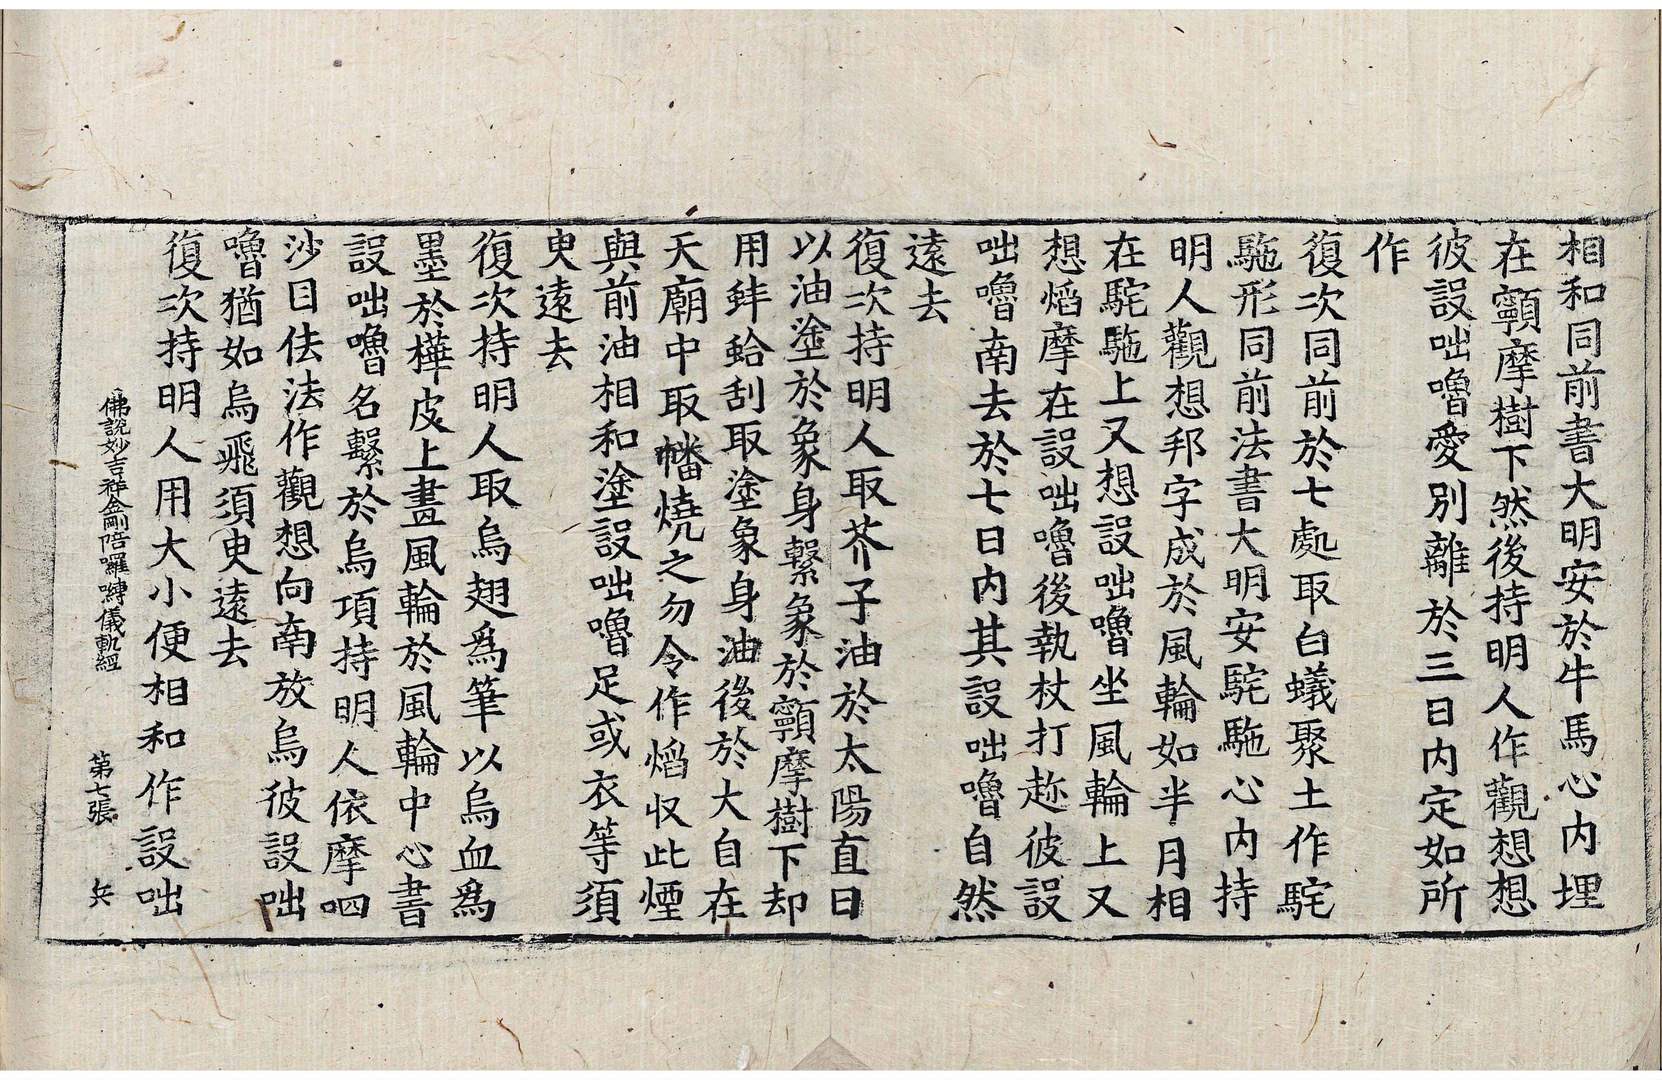 相和同前書大明安於牛馬心內埋
在顐摩樹下然後持明人作觀想想
彼設咄嚕愛別離於三日內定如所
作
復次同前於七處取白蟻聚土作駝
駞形同前法書大明安駝駞心內持
明人觀想邦字成於風輪如半月相
在駝駞上又想設咄嚕坐風輪上又
想焰摩在設咄嚕後執杖打趂彼設
咄嚕南去於七日內其設咄嚕自然
遠去
復次持明人取芥子油於太陽直日
以油塗於象身繫象於顐摩樹下却
用蚌蛤刮取塗象身油後於大自在
天廟中取幡燒之勿令作焰収此煙
與前油相和塗設咄嚕足或衣等須
臾遠去
復次持明人取烏翅爲筆以烏血爲
墨於樺皮上畫風輪於風輪中心書
設咄嚕名繫於烏項持明人依摩呬
沙目佉法作觀想向南放烏彼設咄
嚕猶如烏飛須臾遠去
復次持明人用大小便相和作設咄
佛說妙吉祥金剛陪囉嚩儀軌經 第七張 兵